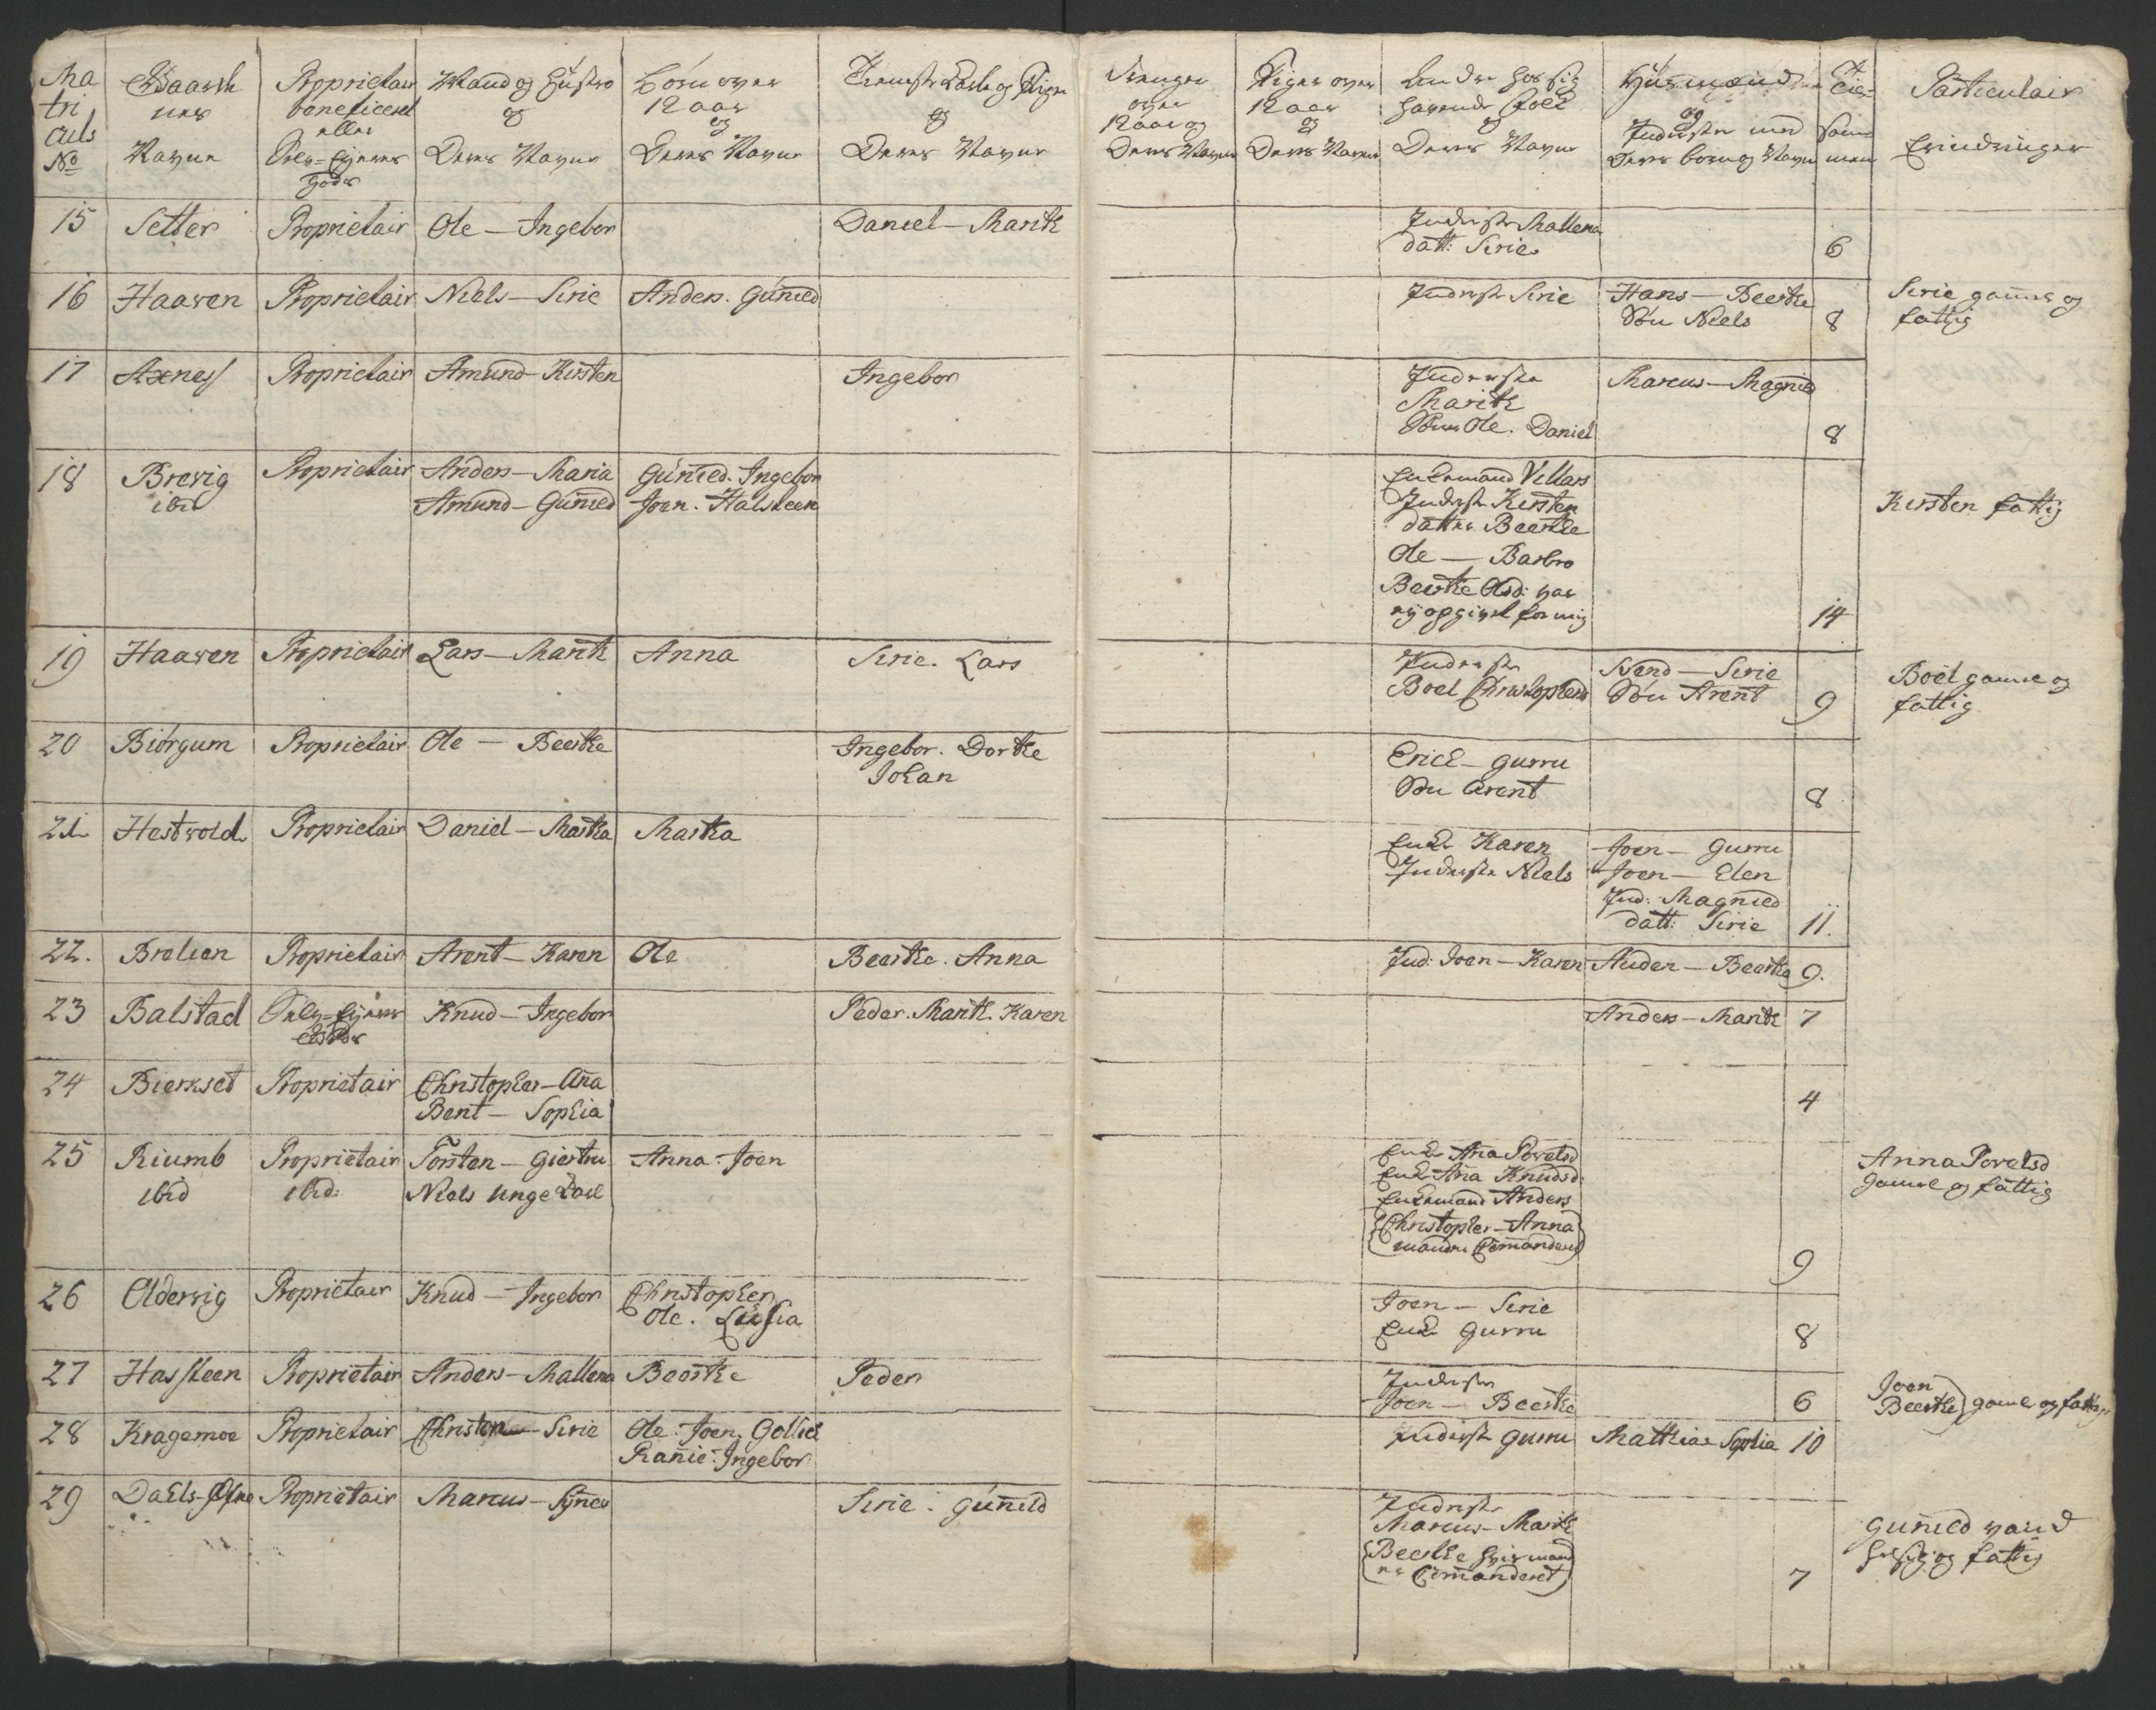 Ma tri culs No | Gaarde nes Navne | Proprietair beneficeret eller Selv-Eyeres Gods | Mand og Hustro og Deres Navne | Børn over 12 aar og Deres Navne | Tieneste Karle og Piger og Deres Navne | Drenge over 12 aar og Deres Navne | Piger over 12 aar og Deres Navne | Andre hos sig havende Folk og Deres Navne | Huusmænd og Inderster med Deres børn og Navne | Til sammen | Particulair Erindringer
15 | Setter | Proprietair | Ole — Ingebor | Daniel — Marith | Inderste Mallena
datt: Sirie | 6
16 | Haaven | Proprietair | Niels — Sirie | Anders. Gunild | Inderste Sirie | Hans — Beerthe | Sirie gamel og
Søn Niels | 8 | fattig
17 | Axness | Proprietair | Amund — Kirsten | Ingebor | Inderste | Marcus — Magnild
Marith
Søner Ole. Daniel | 8
18 | Brevig | Proprietair | Anders — Maria | Gunild. Ingebor | Enkemand Villars
ibid | Amund — Gunild | Joen. Halsteen | Inderste Kirsten | Kirsten fattig
datter Beerthe
Ole — Barbro
Beerthe Olsd: var
ey opgivet for mig | 14
19 | Haaven | Proprietair | Lars — Marith | Anna | Sirie. Lars | Inderste | Svend — Sirie | Boel gamel og
Boel Christophersd | Søn Arent | 9 | fattig
20 | Biörgum | Proprietair | Ole — Beerthe | Ingebor. Dorthe | Erich — Gurru
Johan | Søn Arent | 8
21 | Hestvold | Proprietair | Daniel — Martha | Martha | Enke Karen | Joen — Gurru
Inderste Niels | Joen — Elen
Ind: Magnild
datt: Sirie | 11.
22. | Bralien | Proprietair | Arent — Karen | Ole | Beerthe. Anna | Ind: Joen — Karen | Anders — Beerthe | 9.
23 | Balstad | Selv-Eyeres | Knud — Ingebor | Peder. Marith. Karen | Anders — Marith | 7
24 | Bierkset | Proprietair | Christopher — Ana
Bent — Sophia | 4
25 | Riumb | Proprietair | Torsten — Giertru | Anna. Joen | Enke Ana Povelsd | Anna Povelsd
ibid | ibid: | Niels Unge Karl | Enke Ana Knudsd: | gamel og fattig
Enkemand Anders
Christopher — Anna
manden Comanderet | 9
26 | Oldervig | Proprietair | Knud — Ingebor | Christopher | Joen — Sirie
Ole. Lusia | Enke Gurru | 8
27 | Hassteen | Proprietair | Anders — Mallena | Beerthe | Peder | Inderste | Joen
Joen — Beerthe | 6 | Beerthe gamel og fattige
28 | Kragemoe | Proprietair | Christen — Sirie | Ole. Joen. Gollich | Inderste Gurru | Matthias Sophia | 10
Ranie. Ingebor
29 | Dahls-Øfre | Proprietair | Marcus — Synev | Sirie. Gunild | Inderste | Gunild
Marcus — Marith
Beerthe hvis mand | og fattig
er Comanderet | 7